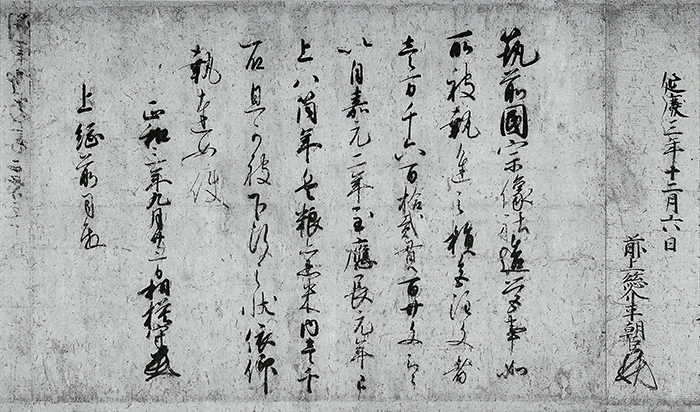 延慶三年十二月六日
前上総介平朝臣
筑前國宗像社造営事如
所被執進之損色注文者
壹万千六百拾貳貫百廿文云々
自嘉元二年至應長元年已
上八箇年 米内壹千
石且可被下行之状依仰
執達如件
正和二年九月廿一日相模守
上総前司殿